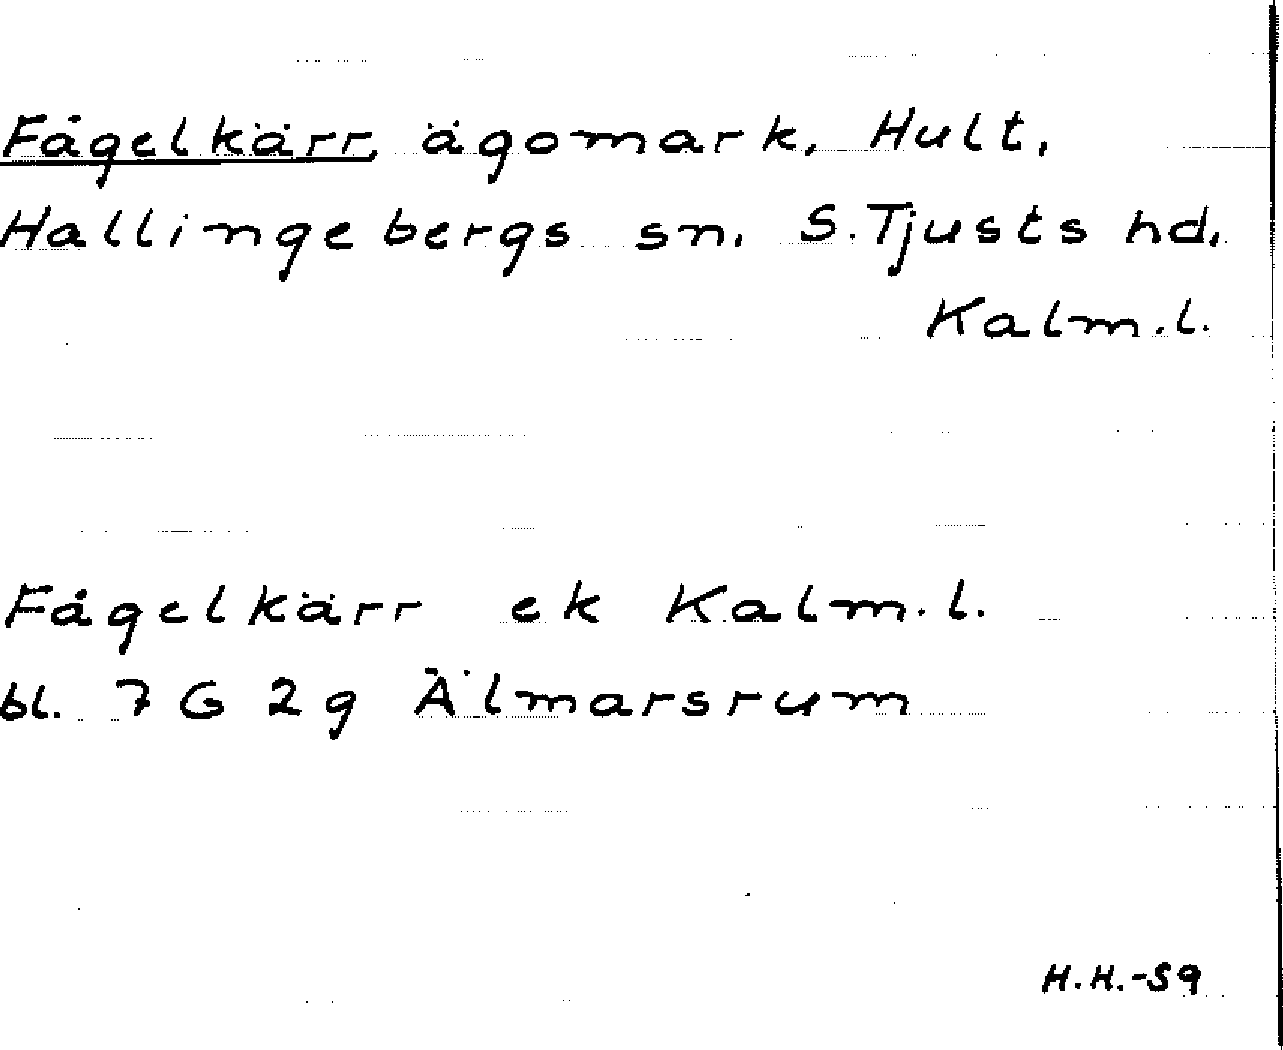 Fågelkärr, ägomark, Hult,
Hallingebergs sn, S. Tjusts hd,
Kalm.l.
Fågelkärr ek Kalm.l.
bl. 7 G 2g Älmarsrum
H.H.-59